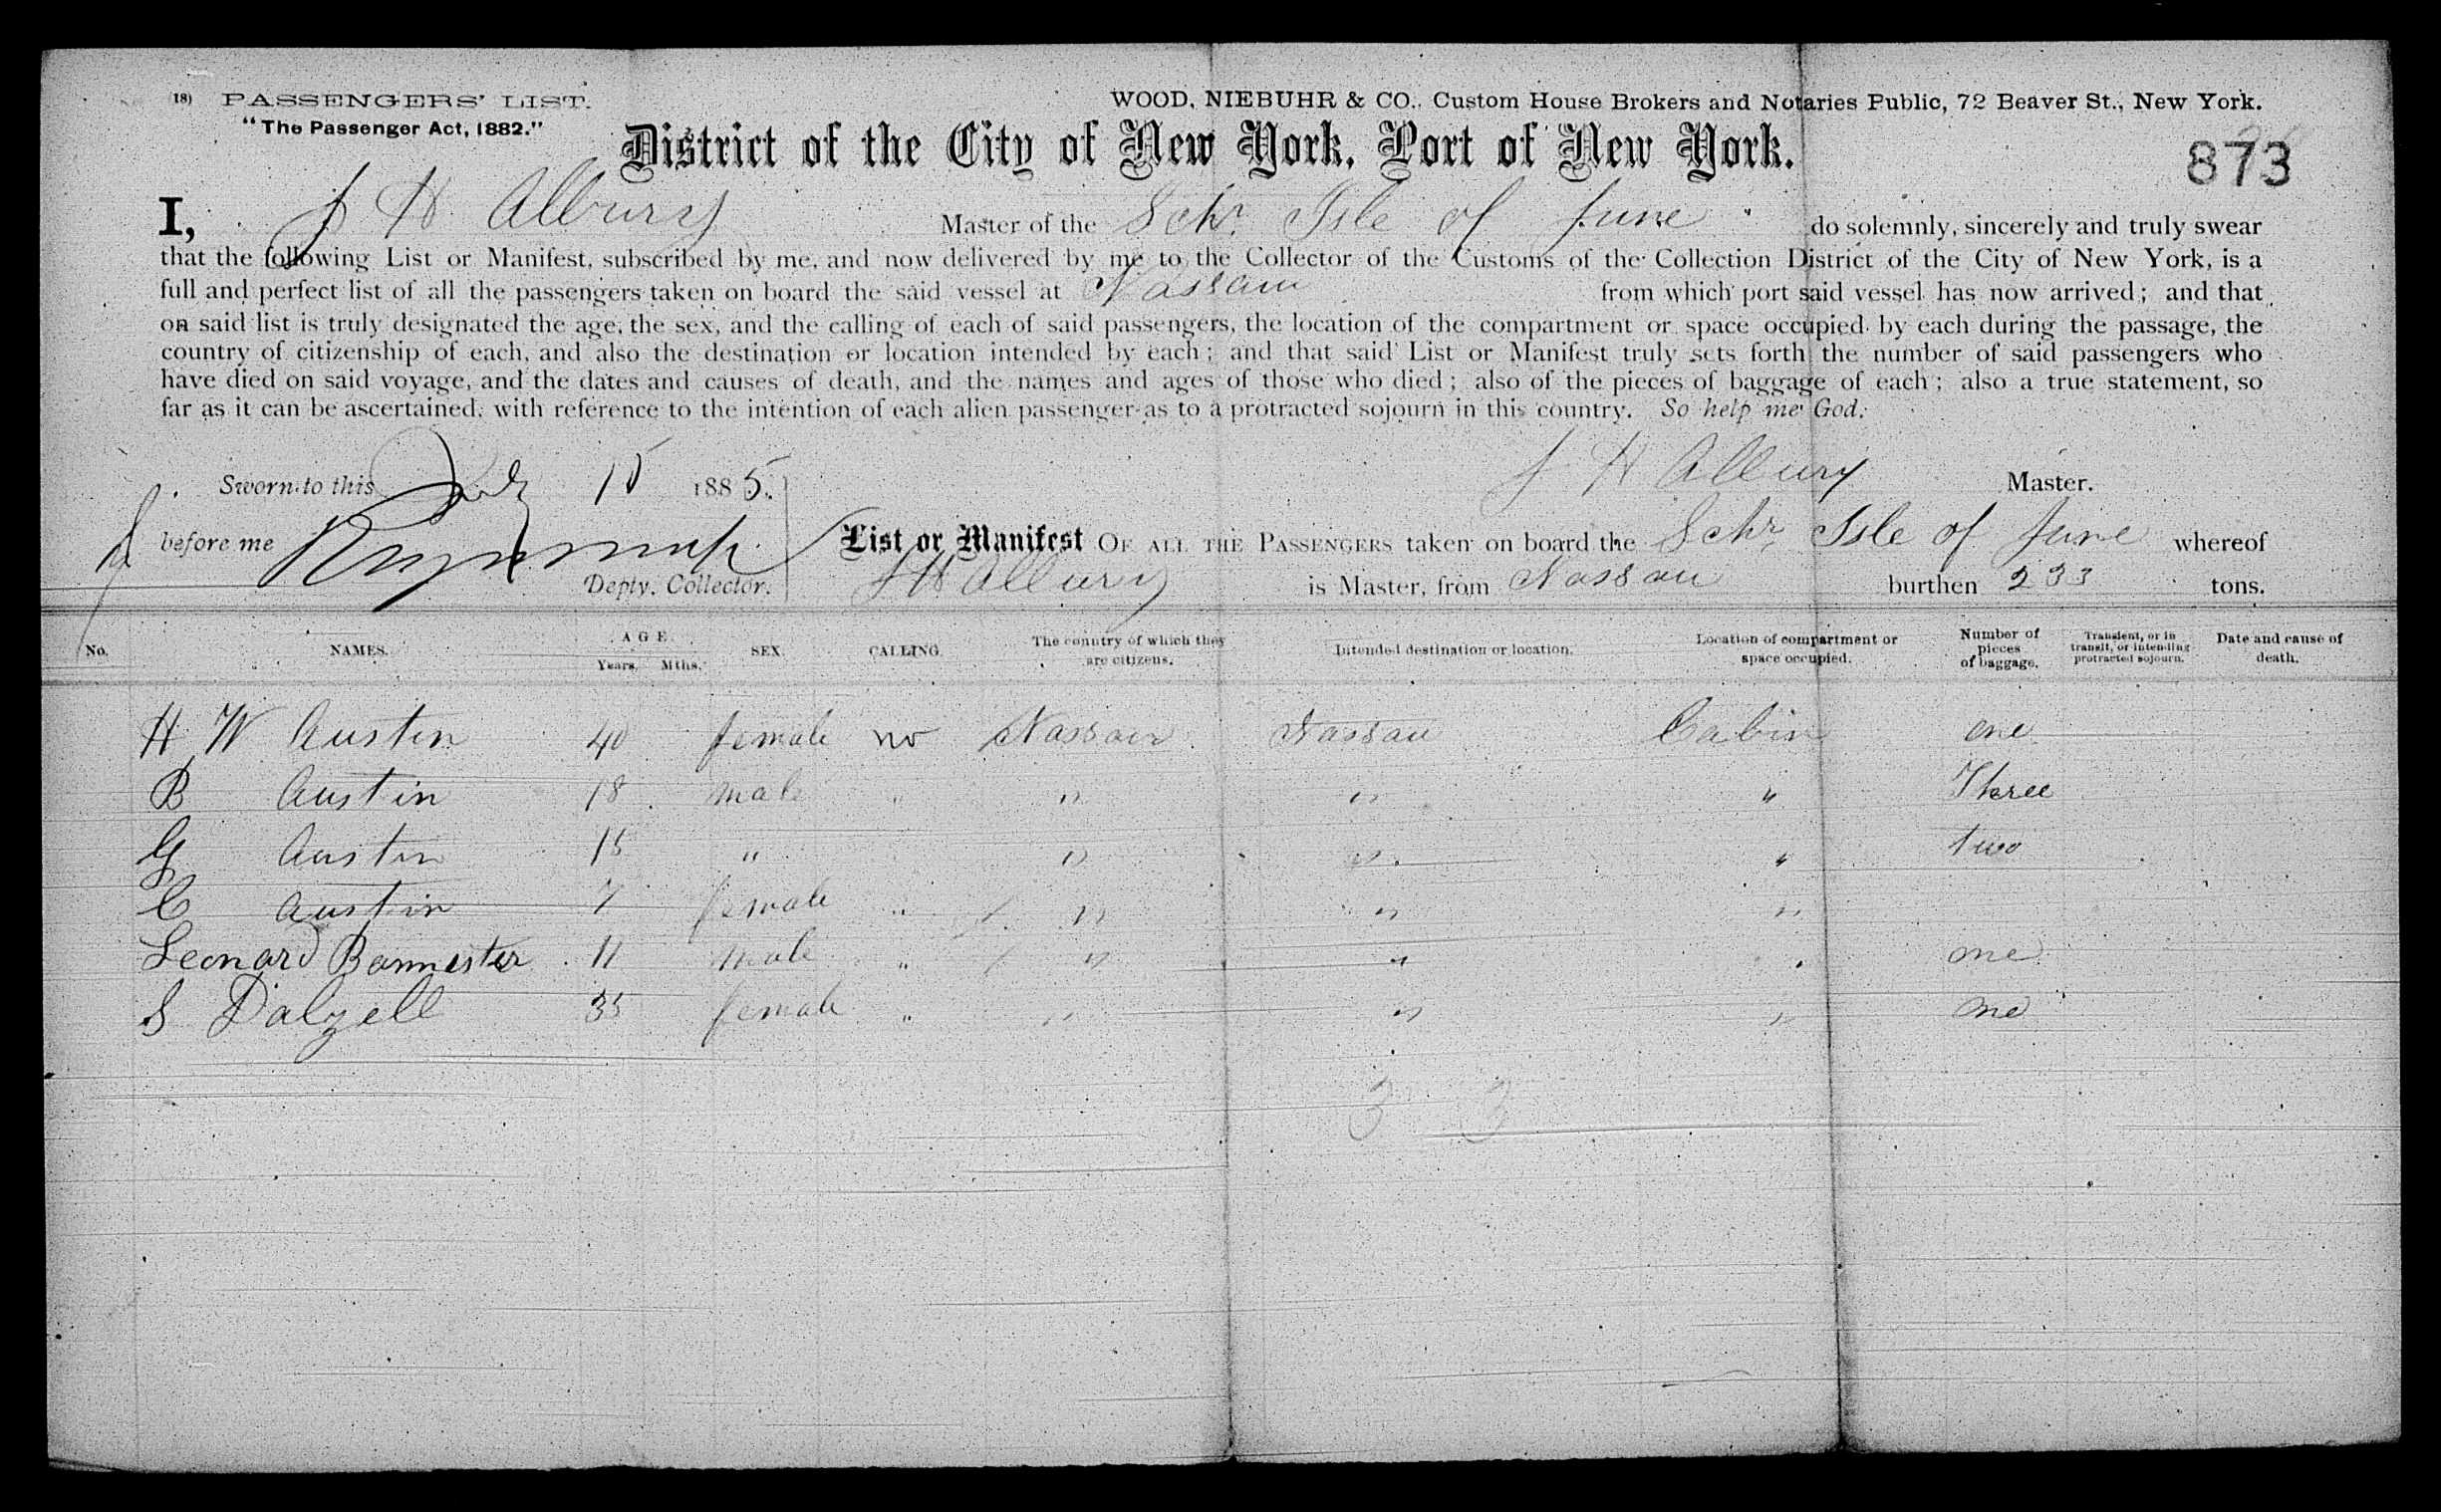 18) PASSENGERS' LIST. WOOD, NIEBUHR & CO., Custom House Brokers and Notaries Public, 72 Beaver St., New York.
"The Passenger Act, 1882."
District of the City of New York, Port of New York.
873
I, J H Albury Master of the Schr. Isle of June do solemnly, sincerely and truly swear
that the following List or Manifest, subscribed by me, and now delivered by me to the Collector of the Customs of the Collection District of the City of New York, is a
full and perfect list of all the passengers taken on board the said vessel at Nassau from which port said vessel has now arrived; and that
on said list is truly designated the age, the sex, and the calling of each of said passengers, the location of the compartment or space occupied by each during the passage, the
country of citizenship of each, and also the destination or location intended by each; and that said List or Manifest truly sets forth the number of said passengers who
have died on said voyage, and the dates and causes of death, and the names and ages of those who died; also of the pieces of baggage of each; also a true statement, so
far as it can be ascertained, with reference to the intention of each alien passenger as to a protracted sojourn in this country. So help me God.
Sworn to this July 15 1885. J H Albury Master.
before me List or Manifest OF ALL THE PASSENGERS taken on board the Schr Isle of June whereof
Depty. Collector. J H Albury is Master, from Nassau burthen 233 tons.
No. NAMES. AGE. Years. Mths. SEX. CALLING. The country of which they are citizens. Intended destination or location. Location of compartment or space occupied. Number of pieces of baggage. Transient, or in transit, or intending protracted sojourn. Date and cause of death.
H W Austin 40 female no Nassau Nassau Cabin one
B Austin 18 male " " " " Three
G Austin 15 " " " " two
C Austin 7 female " " " "
Leonard Bannester 11 male " " " " one
S Dalzell 35 female " " " " one
3 3